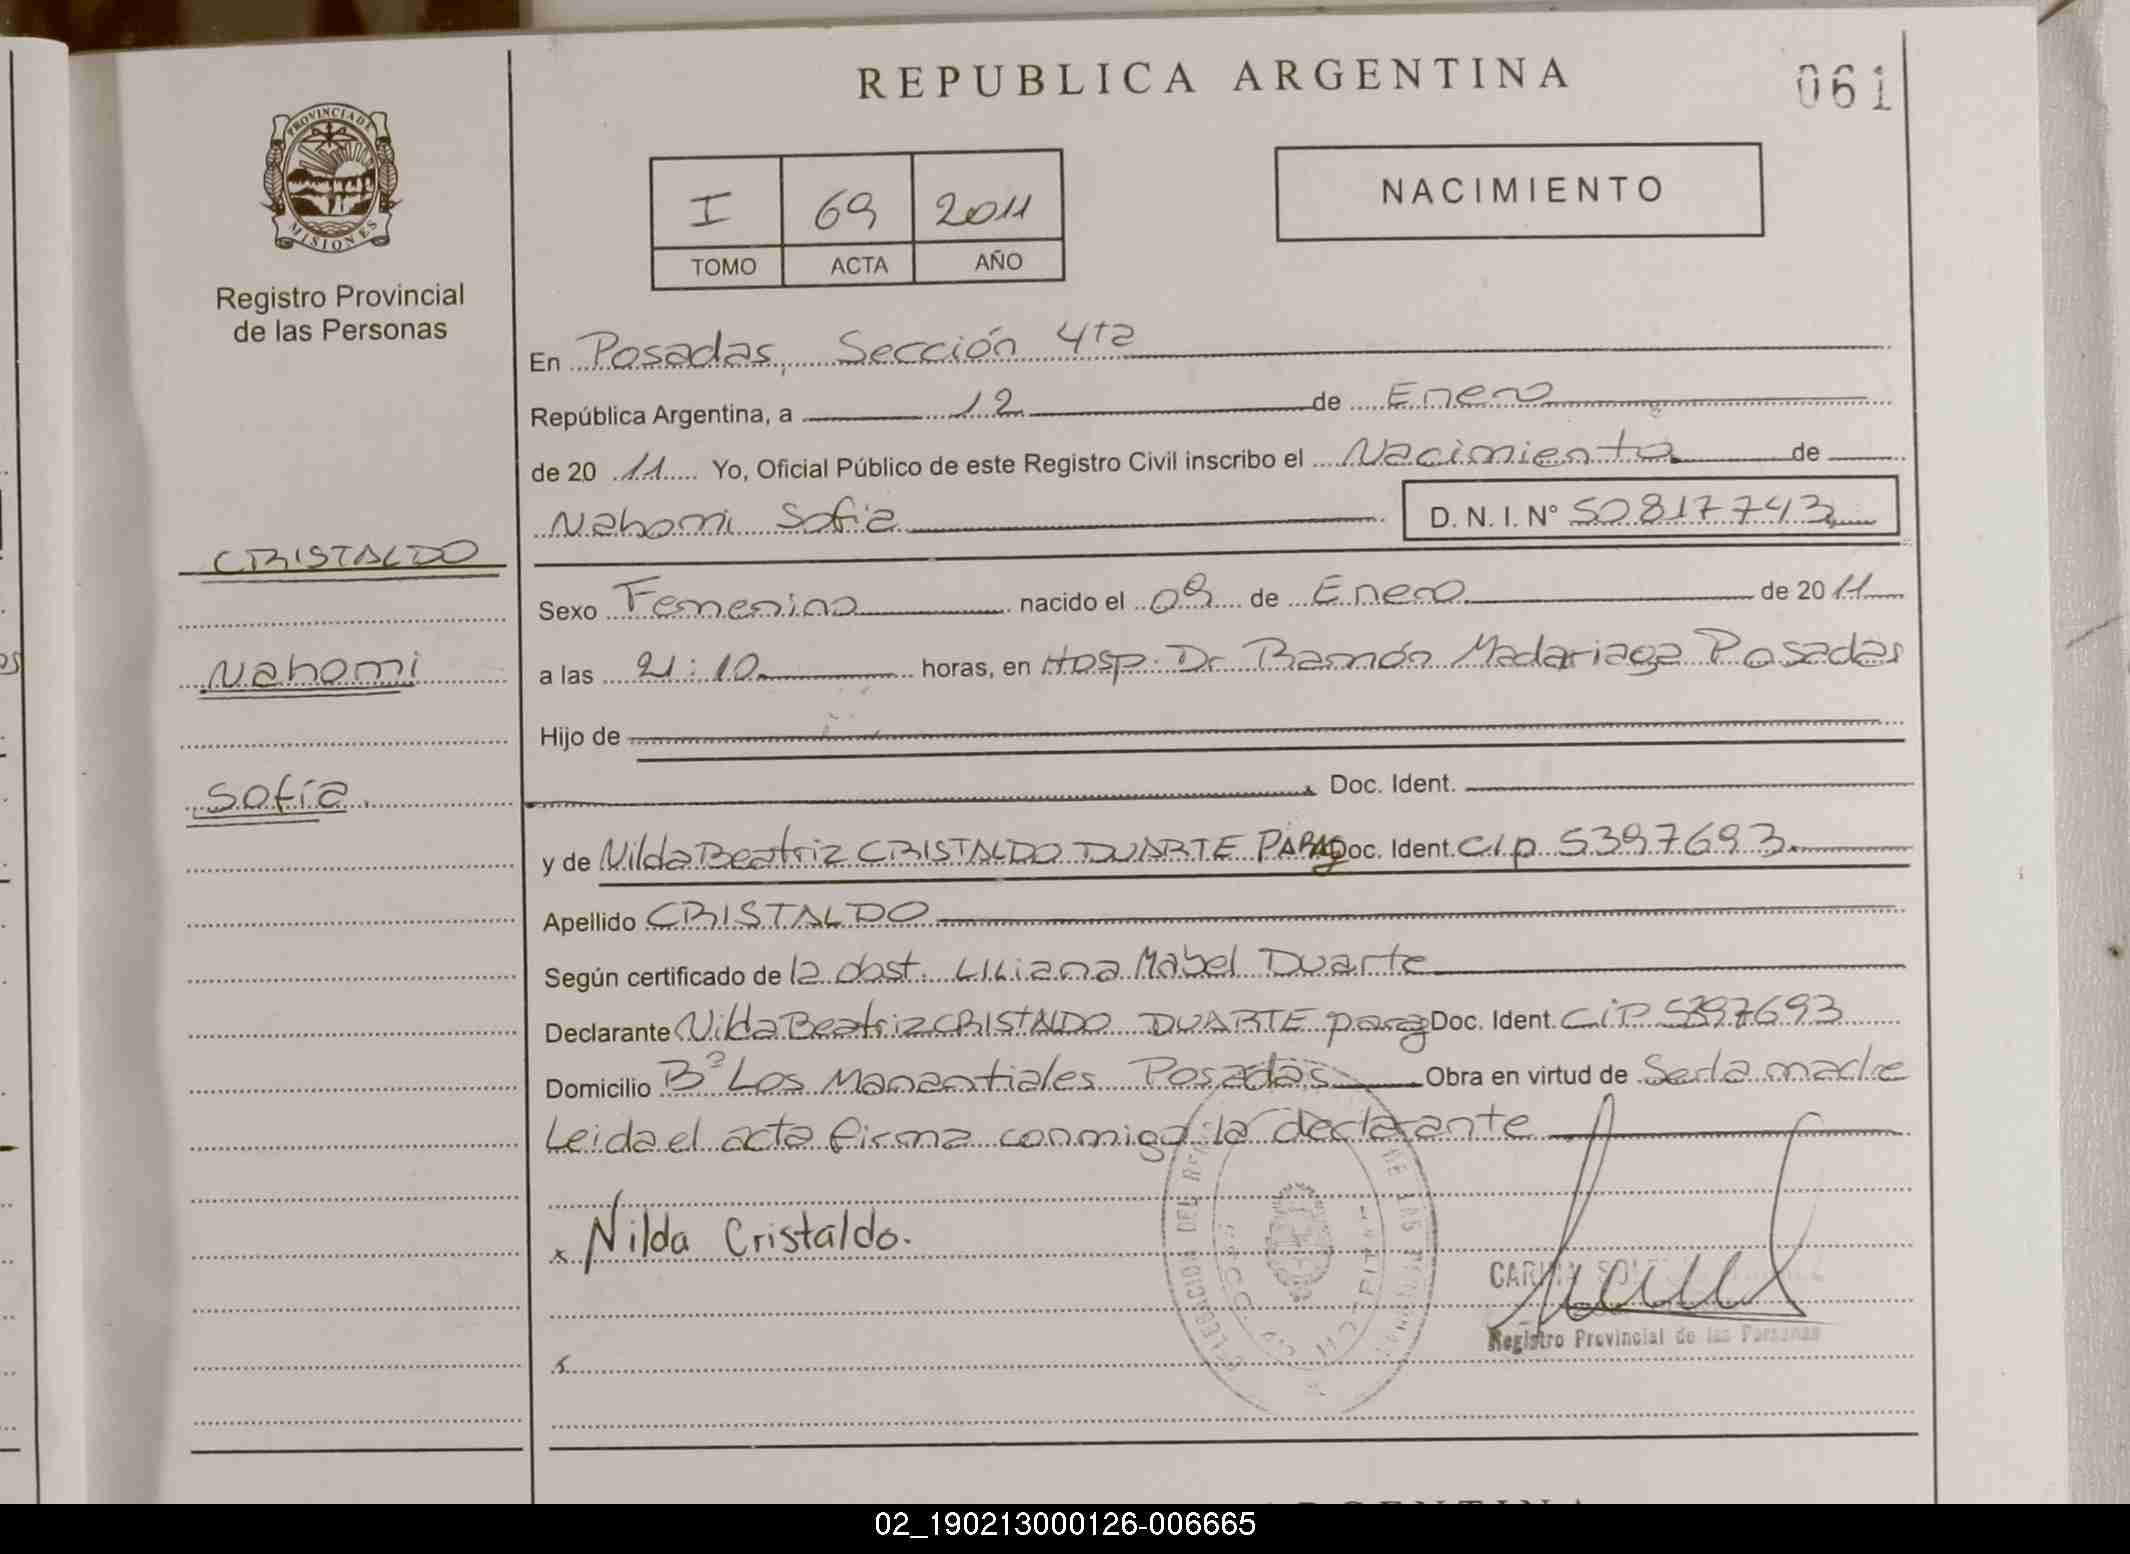 REPUBLICA ARGENTINA
061
PROVINCIA DE
MISIONES
Registro Provincial
de las Personas
I 69 2011
TOMO ACTA AÑO
NACIMIENTO
En Posadas, Sección 4ta
República Argentina, a 12 de Enero
de 20 11 Yo, Oficial Público de este Registro Civil inscribo el Nacimiento de
Nahomi Sofia D. N. I. N° 50817743
CRISTALDO
Nahomi
Sofía
Sexo Femenino nacido el 09 de Enero de 20 11
a las 21:10 horas, en Hosp. Dr Ramón Madariaga Posadas
Hijo de
Doc. Ident.
y de Nilda Beatriz CRISTALDO DUARTE PARAG Doc. Ident. CIP 5397693
Apellido CRISTALDO
Según certificado de la obst. Liliana Mabel Duarte
Declarante Nilda Beatriz CRISTALDO DUARTE parag Doc. Ident. CIP 5397693
Domicilio B° Los Manantiales Posadas Obra en virtud de Ser la madre
Leida el acta firma conmigo la declarante
x Nilda Cristaldo.
Registro Provincial de las Personas
02_190213000126-006665